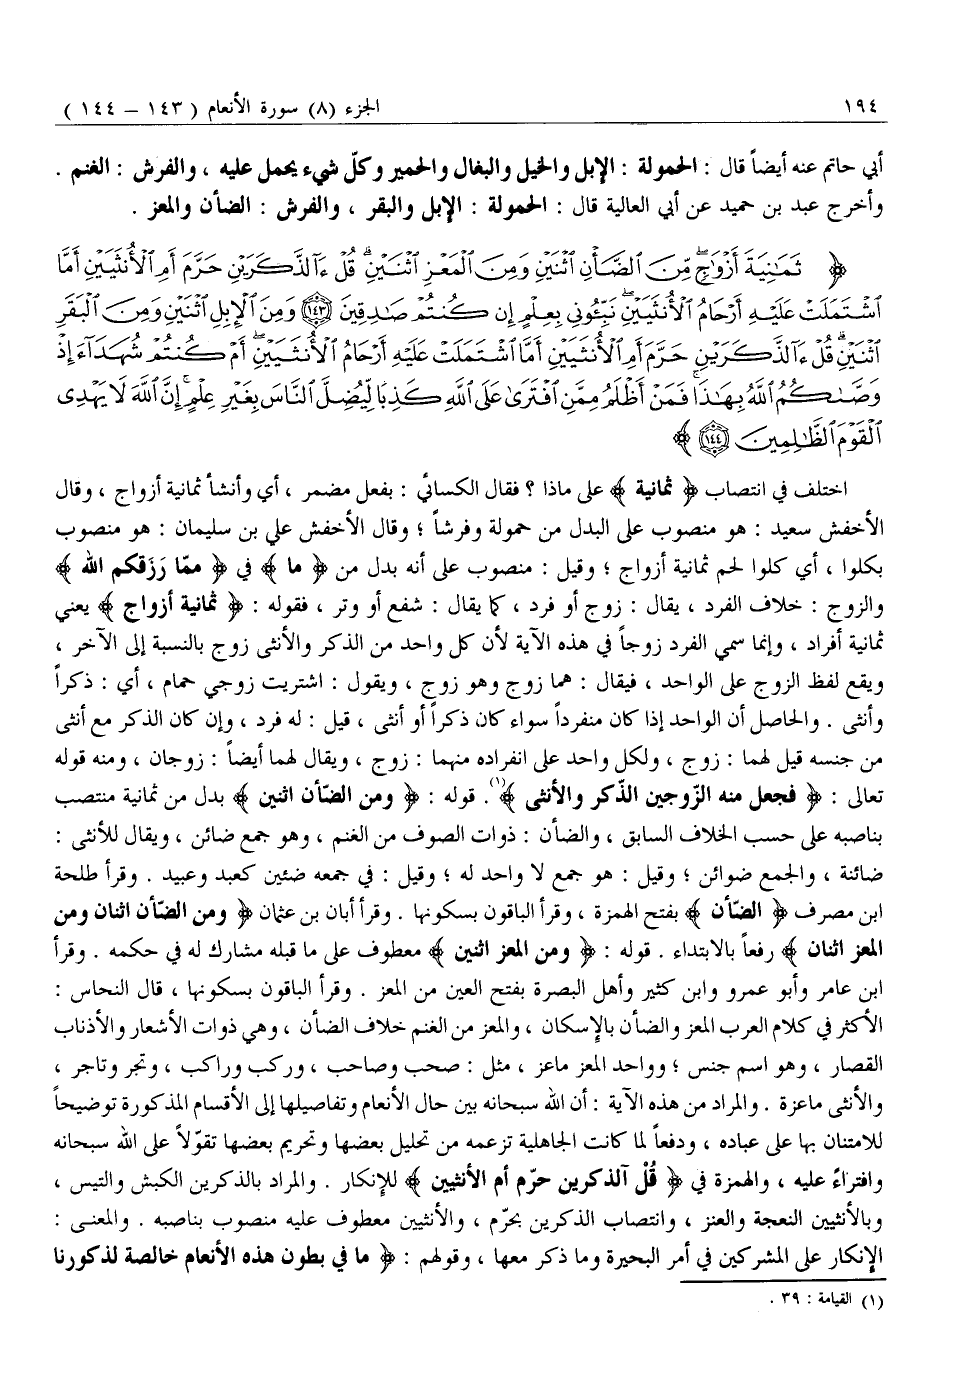 ١٩٤ الجزء (٨) سورة الأنعام ( ١٤٣ – ١٤٤ )
أبي حاتم عنه أيضاً قال : الحمولة : الإبل والخيل والبغال والحمير وكلّ شيء يحمل عليه ، والفرش : الغنم .
وأخرج عبد بن حميد عن أبي العالية قال : الحمولة : الإبل والبقر ، والفرش : الضأن والمعز .
﴿ ثَمَٰنِيَةَ أَزْوَٰجٍ ۖ مِّنَ ٱلضَّأْنِ ٱثْنَيْنِ وَمِنَ ٱلْمَعْزِ ٱثْنَيْنِ ۗ قُلْ ءَآلذَّكَرَيْنِ حَرَّمَ أَمِ ٱلْأُنثَيَيْنِ أَمَّا
ٱشْتَمَلَتْ عَلَيْهِ أَرْحَامُ ٱلْأُنثَيَيْنِ ۖ نَبِّـُٔونِى بِعِلْمٍ إِن كُنتُمْ صَٰدِقِينَ ﴿١٤٣﴾ وَمِنَ ٱلْإِبِلِ ٱثْنَيْنِ وَمِنَ ٱلْبَقَرِ
ٱثْنَيْنِ ۗ قُلْ ءَآلذَّكَرَيْنِ حَرَّمَ أَمِ ٱلْأُنثَيَيْنِ أَمَّا ٱشْتَمَلَتْ عَلَيْهِ أَرْحَامُ ٱلْأُنثَيَيْنِ ۖ أَمْ كُنتُمْ شُهَدَآءَ إِذْ
وَصَّىٰكُمُ ٱللَّهُ بِهَٰذَا ۚ فَمَنْ أَظْلَمُ مِمَّنِ ٱفْتَرَىٰ عَلَى ٱللَّهِ كَذِبًا لِّيُضِلَّ ٱلنَّاسَ بِغَيْرِ عِلْمٍ ۗ إِنَّ ٱللَّهَ لَا يَهْدِى
ٱلْقَوْمَ ٱلظَّٰلِمِينَ ﴿١٤٤﴾ ﴾
اختلف في انتصاب ﴿ ثمانية ﴾ على ماذا ؟ فقال الكسائيّ : بفعل مضمر ، أي وأنشأ ثمانية أزواج ، وقال
الأخفش سعيد : هو منصوب على البدل من حمولة وفرشاً ؛ وقال الأخفش علي بن سليمان : هو منصوب
بكلوا ، أي كلوا لحم ثمانية أزواج ؛ وقيل : منصوب على أنه بدل من ﴿ ما ﴾ في ﴿ ممّا رَزَقكم الله ﴾
والزوج : خلاف الفرد ، يقال : زوج أو فرد ، كما يقال : شفع أو وتر ، فقوله : ﴿ ثمانية أزواج ﴾ يعني
ثمانية أفراد ، وإنما سمي الفرد زوجاً في هذه الآية لأن كل واحد من الذكر والأنثى زوج بالنسبة إلى الآخر ،
ويقع لفظ الزوج على الواحد ، فيقال : هما زوج وهو زوج ، ويقول : اشتريت زوجي حمام ، أي : ذكراً
وأنثى . والحاصل أن الواحد إذا كان منفرداً سواء كان ذكراً أو أنثى ، قيل : له فرد ، وإن كان الذكر مع أنثى
من جنسه قيل لهما : زوج ، ولكل واحد على انفراده منهما : زوج ، ويقال لهما أيضاً : زوجان ، ومنه قوله
تعالى : ﴿ فجعل منه الزّوجين الذّكر والأنثى ﴾(١). قوله : ﴿ ومن الضّأن اثنين ﴾ بدل من ثمانية منتصب
بناصبه على حسب الخلاف السابق ، والضأن : ذوات الصوف من الغنم ، وهو جمع ضائن ، ويقال للأنثى :
ضائنة ، والجمع ضوائن ؛ وقيل : هو جمع لا واحد له ؛ وقيل : في جمعه ضئين كعبد وعبيد . وقرأ طلحة
ابن مصرف ﴿ الضّأن ﴾ بفتح الهمزة ، وقرأ الباقون بسكونها . وقرأ أبان بن عثمان ﴿ ومن الضّأن اثنان ومن
المعز اثنان ﴾ رفعاً بالابتداء . قوله : ﴿ ومن المعز اثنين ﴾ معطوف على ما قبله مشارك له في حكمه . وقرأ
ابن عامر وأبو عمرو وابن كثير وأهل البصرة بفتح العين من المعز . وقرأ الباقون بسكونها ، قال النحاس :
الأكثر في كلام العرب المعز والضأن بالإسكان ، والمعز من الغنم خلاف الضأن ، وهي ذوات الأشعار والأذناب
القصار ، وهو اسم جنس ؛ وواحد المعز ماعز ، مثل : صحب وصاحب ، وركب وراكب ، وتجر وتاجر ،
والأنثى ماعزة . والمراد من هذه الآية : أن الله سبحانه بين حال الأنعام وتفاصيلها إلى الأقسام المذكورة توضيحاً
للامتنان بها على عباده ، ودفعاً لما كانت الجاهلية تزعمه من تحليل بعضها وتحريم بعضها تقوّلاً على الله سبحانه
وافتراءً عليه ، والهمزة في ﴿ قُلْ آلذكرين حرّم أم الأنثيين ﴾ للإنكار . والمراد بالذكرين الكبش والتيس ،
وبالأنثيين النعجة والعنز ، وانتصاب الذكرين بحرّم ، والأنثيين معطوف عليه منصوب بناصبه . والمعنى :
الإنكار على المشركين في أمر البحيرة وما ذكر معها ، وقولهم : ﴿ ما في بطون هذه الأنعام خالصة لذكورنا
(١) القيامة : ٣٩ .